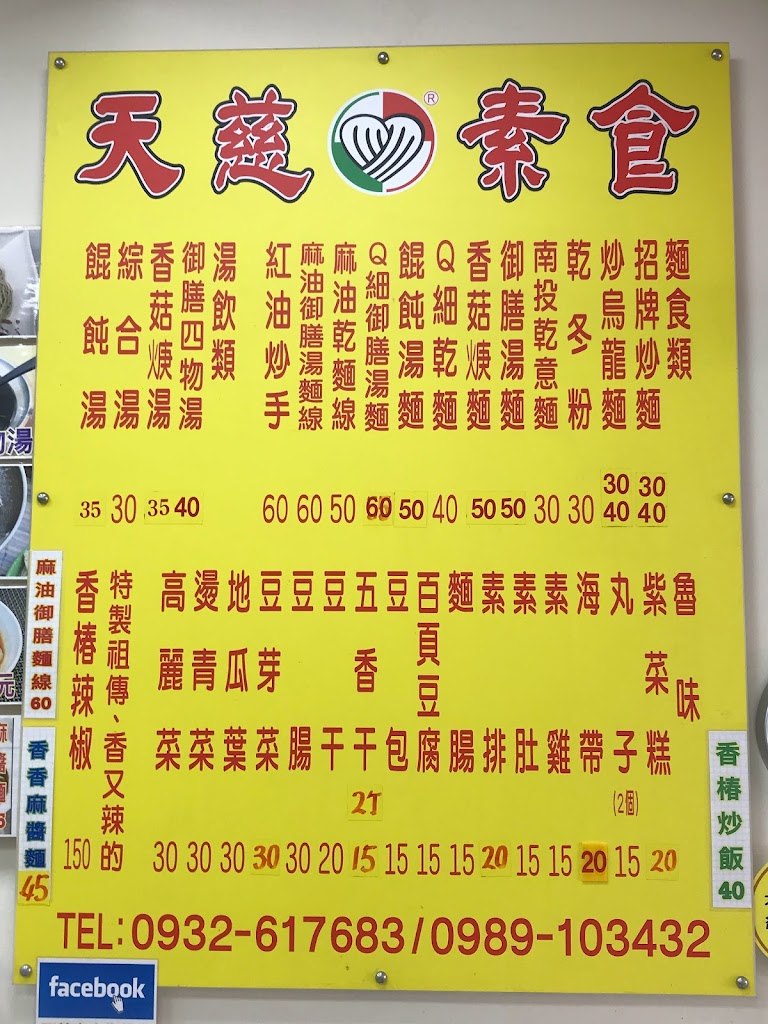 天慈®素食
麵食類
招牌炒麵 30 40
炒烏龍麵 30 40
乾冬粉 30
南投乾意麵 30
御膳湯麵 50
香菇焿麵 50
Q細乾麵 40
餛飩湯麵 50
Q細御膳湯麵 60
麻油乾麵線 50
麻油御膳湯麵線 60
紅油炒手 60
湯飲類
御膳四物湯 40
香菇焿湯 35
綜合湯 30
餛飩湯 35
魯味
紫菜糕 20
丸子(2個) 15
海帶 20
素雞 15
素肚 15
素排 20
麵腸 15
百頁豆腐 15
豆包 15
五香干 2丁 15
豆干 20
豆腸 30
豆芽菜 30
地瓜葉 30
燙青菜 30
高麗菜 30
特製祖傳、香又辣的
香椿辣椒 150
麻油御膳麵線60
香香麻醬麵 45
香椿炒飯 40
TEL:0932-617683/0989-103432
facebook